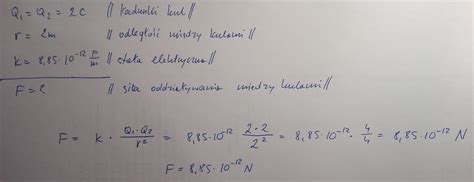 Q₁ = Q₂ = 2C // ładunki kul //
r = 2m // odległość między kulami //
k = 8,85·10⁻¹² F/m // stała elektryczna //
F = ? // siła oddziaływania między kulami //
F = k · Q₁·Q₂/r² = 8,85·10⁻¹² 2·2/2² = 8,85·10⁻¹² · 4/4 = 8,85·10⁻¹² N
F = 8,85·10⁻¹² N